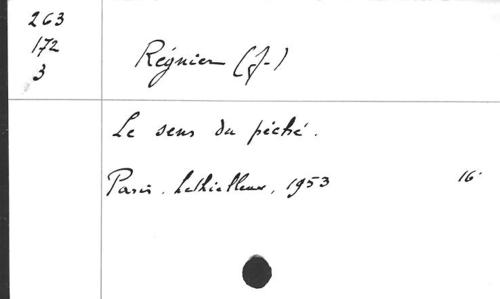 263
172
3
Régnier (J-)
Le sens du péché.
Paris. Lethielleux, 1953 16°